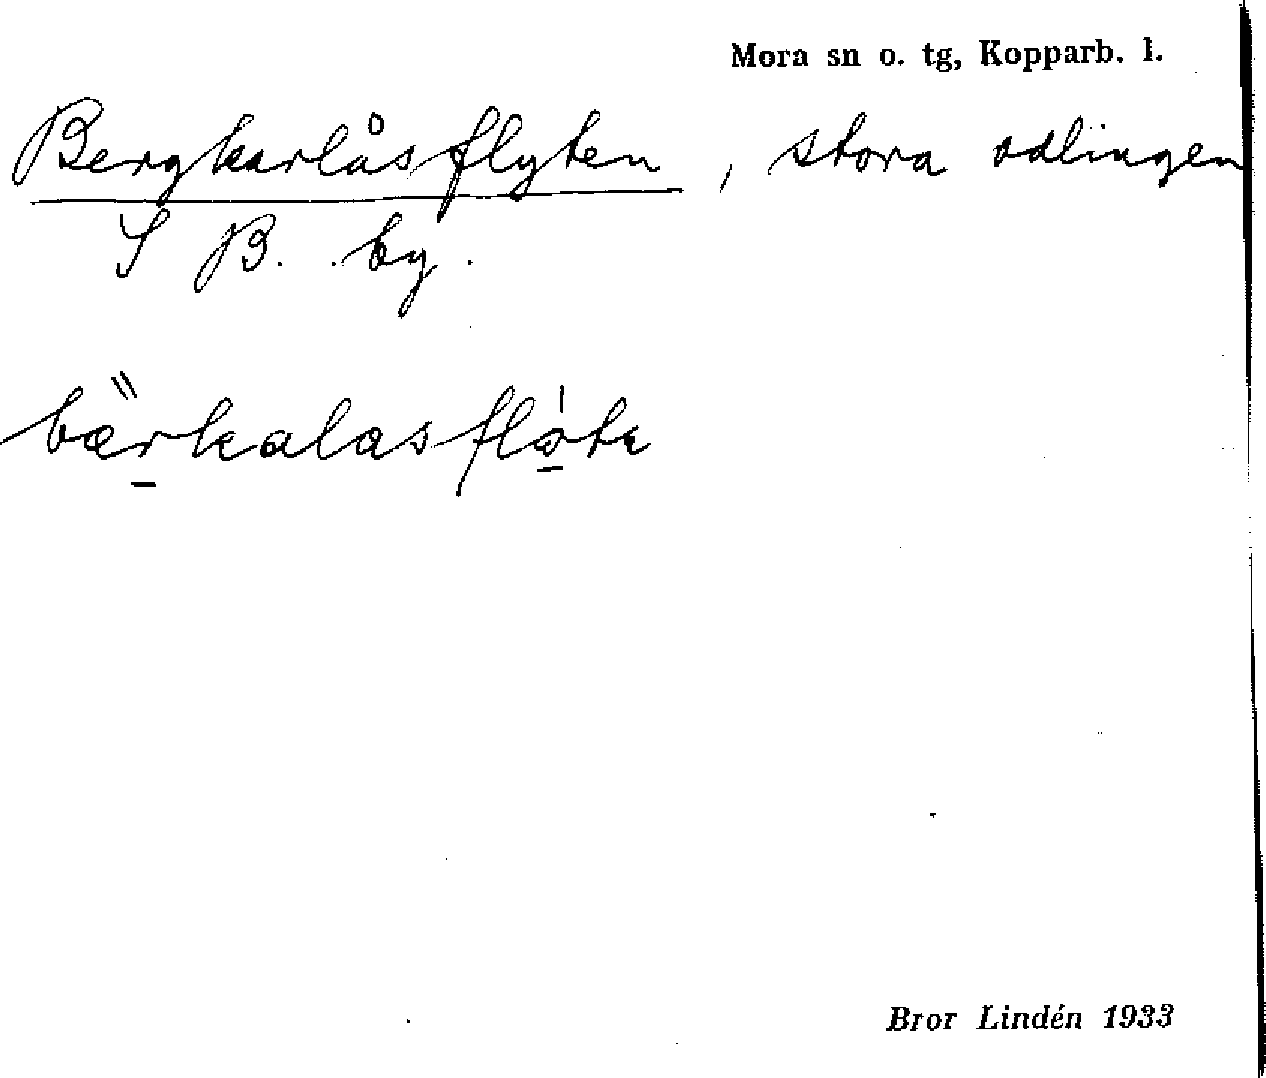 Mora sn o. tg, Kopparb. l.
Bergkarlåsflyten, stora odlingen
S B. by.
bærkalasfløtę
Bror Lindén 1933